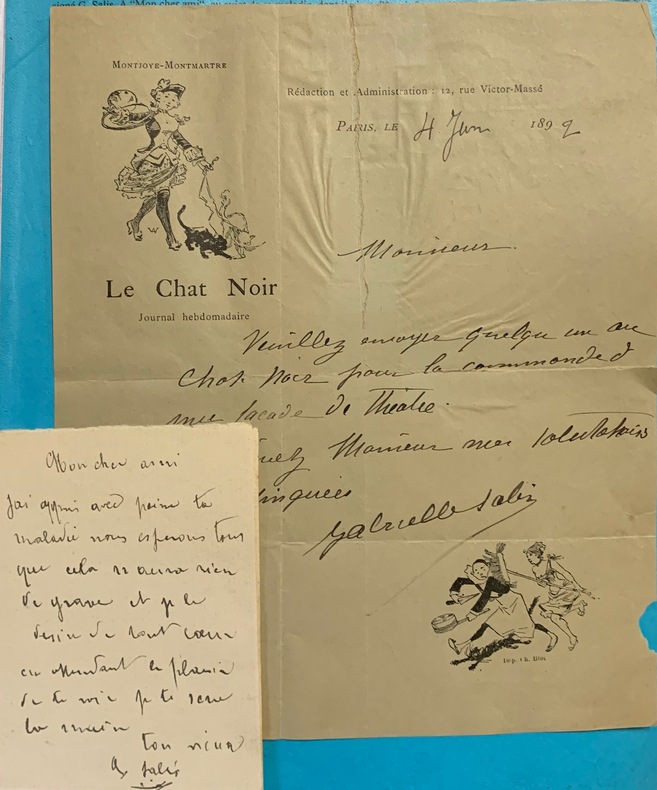 signé G. Salis. A "Mon cher ami"
MONTJOYE-MONTMARTRE
Rédaction et Administration : 12, rue Victor-Massé
PARIS, LE 4 Juin 1892
W
Monsieur.
Le Chat Noir
Journal hebdomadaire
Veuillez envoyer quelqu un au
Chat Noir pour la commande d
une façade de Théâtre.
Monsieur mes salutations
Gabrielle Salis
Imp. Ch. Blot
Mon cher ami
J'ai appris avec peine ta
maladie nous esperons tous
que cela n aura rien
de grave et je le
desire de tout cœur
en attendant le plaisir
de te voir je te serre
la main
ton vieux
G Salis